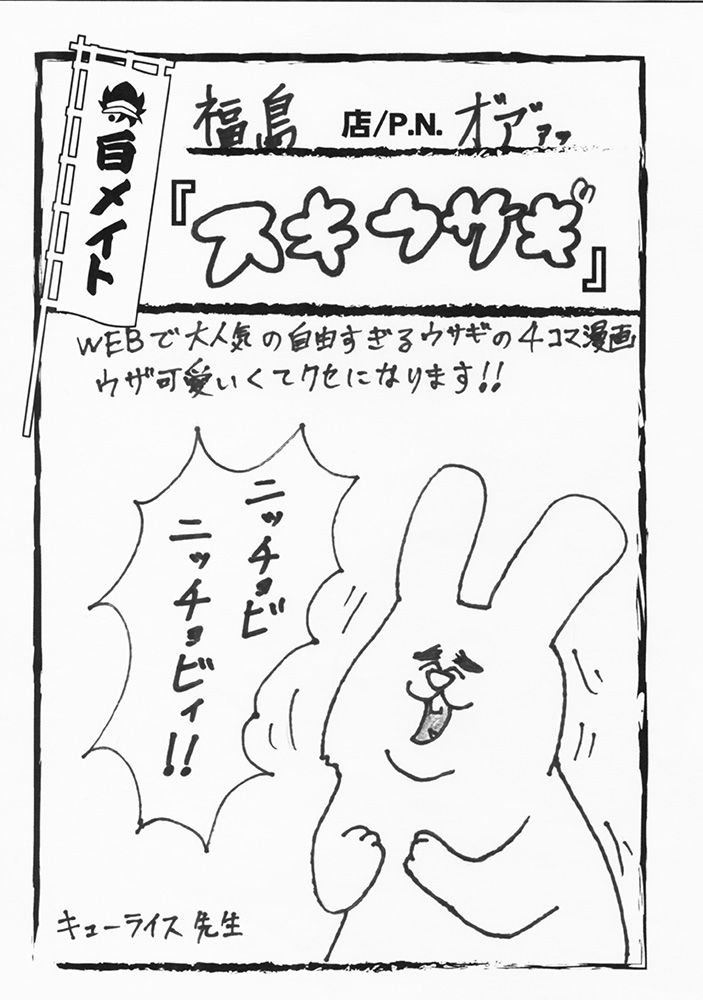 福島 店/P.N. オデッ
の百メイト
『スキウサギ』
WEBで大人気の自由すぎるウサギの4コマ漫画
ウザ可愛いくてクセになります!!
ニッチョビ
ニッチョビィ!!
キューライス先生